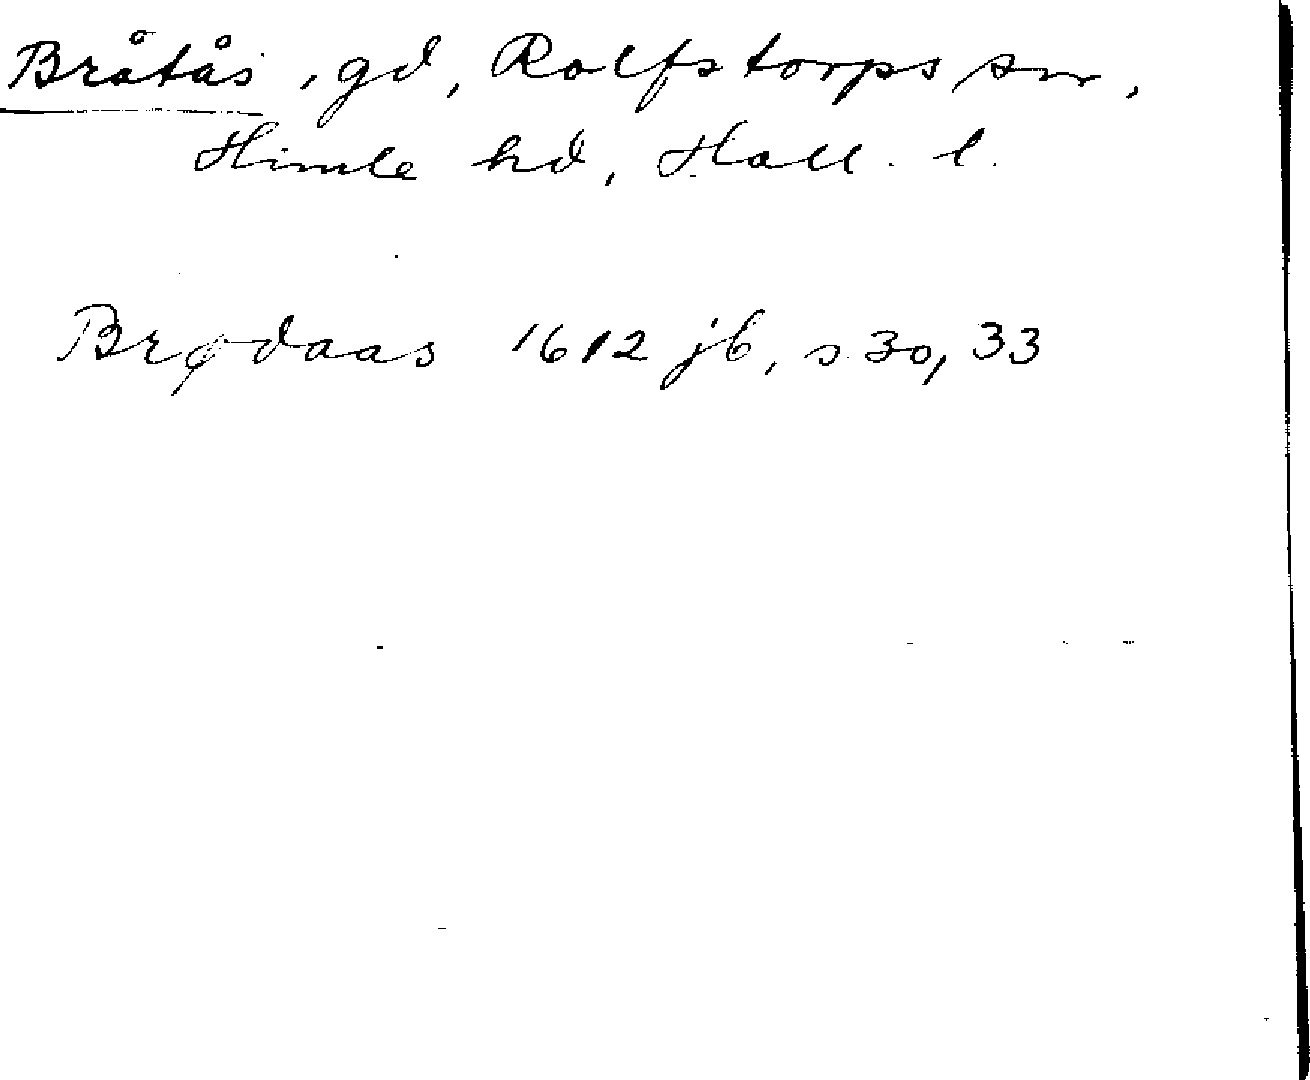 Bråtås, gd, Rolfstorps sn,
Himle hd, Hall. l.
Brødaas 1612 jb, s 30, 33